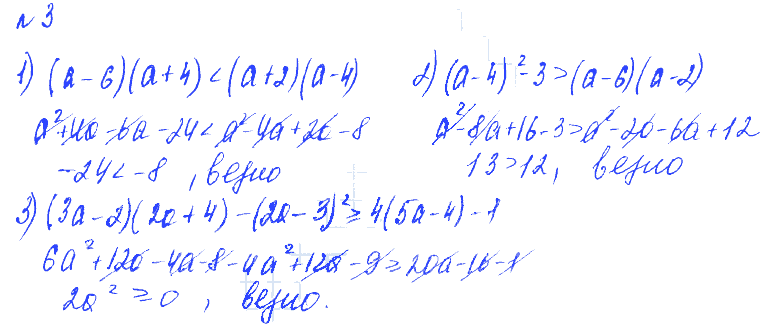 №3
1) (a-6)(a+4)<(a+2)(a-4)
a²+4a-6a-24<a²-4a+2a-8
-24<-8, верно
2) (a-4)²-3>(a-6)(a-2)
a²-8a+16-3>a²-2a-6a+12
13>12, верно
3) (3a-2)(2a+4)-(2a-3)²≥4(5a-4)-1
6a²+12a-4a-8-4a²+12a-9≥20a-16-1
2a²≥0, верно.